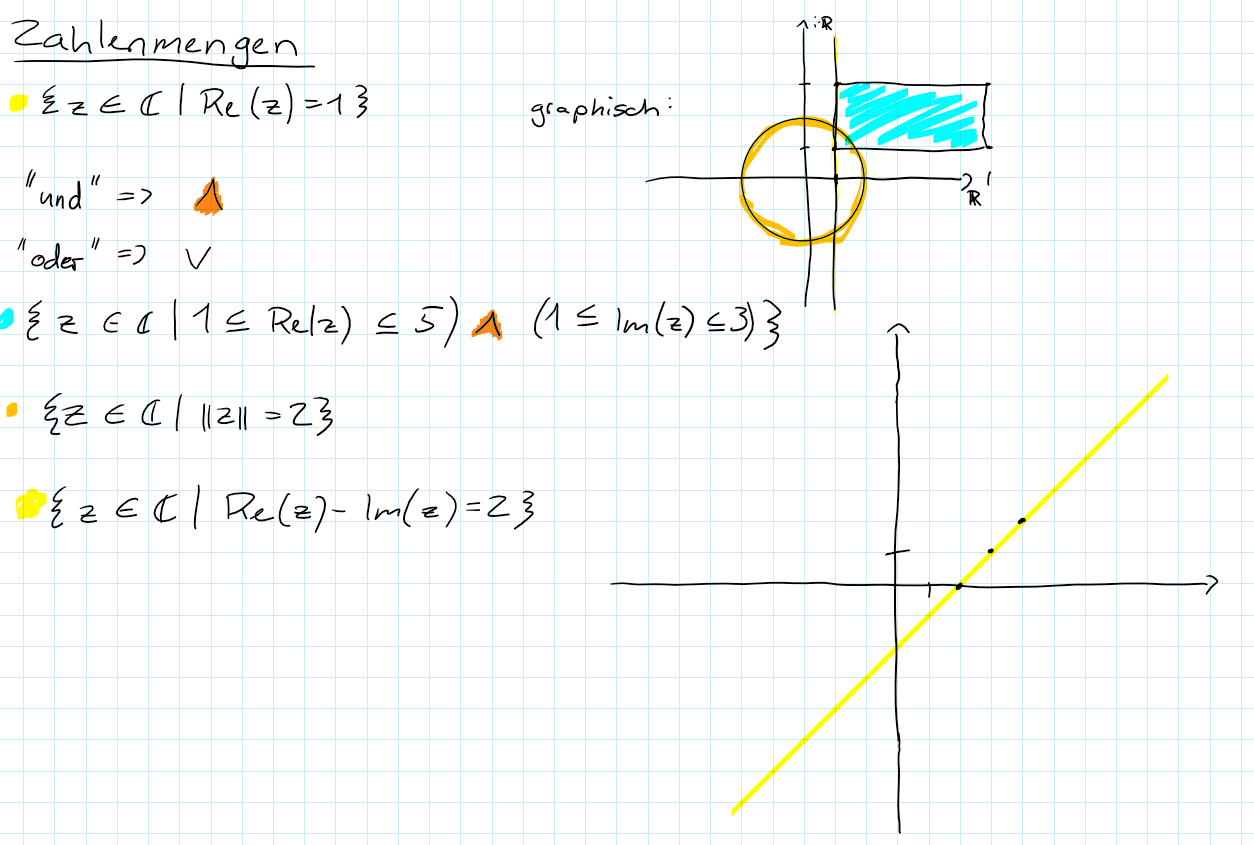 Zahlenmengen
{z ∈ ℂ | Re(z) = 1}
graphisch:
iℝ
ℝ
"und" => ∧
"oder" => ∨
{z ∈ ℂ | 1 ≤ Re(z) ≤ 5) ∧ (1 ≤ Im(z) ≤ 3)}
{z ∈ ℂ | ||z|| = 2}
{z ∈ ℂ | Re(z) - Im(z) = 2}